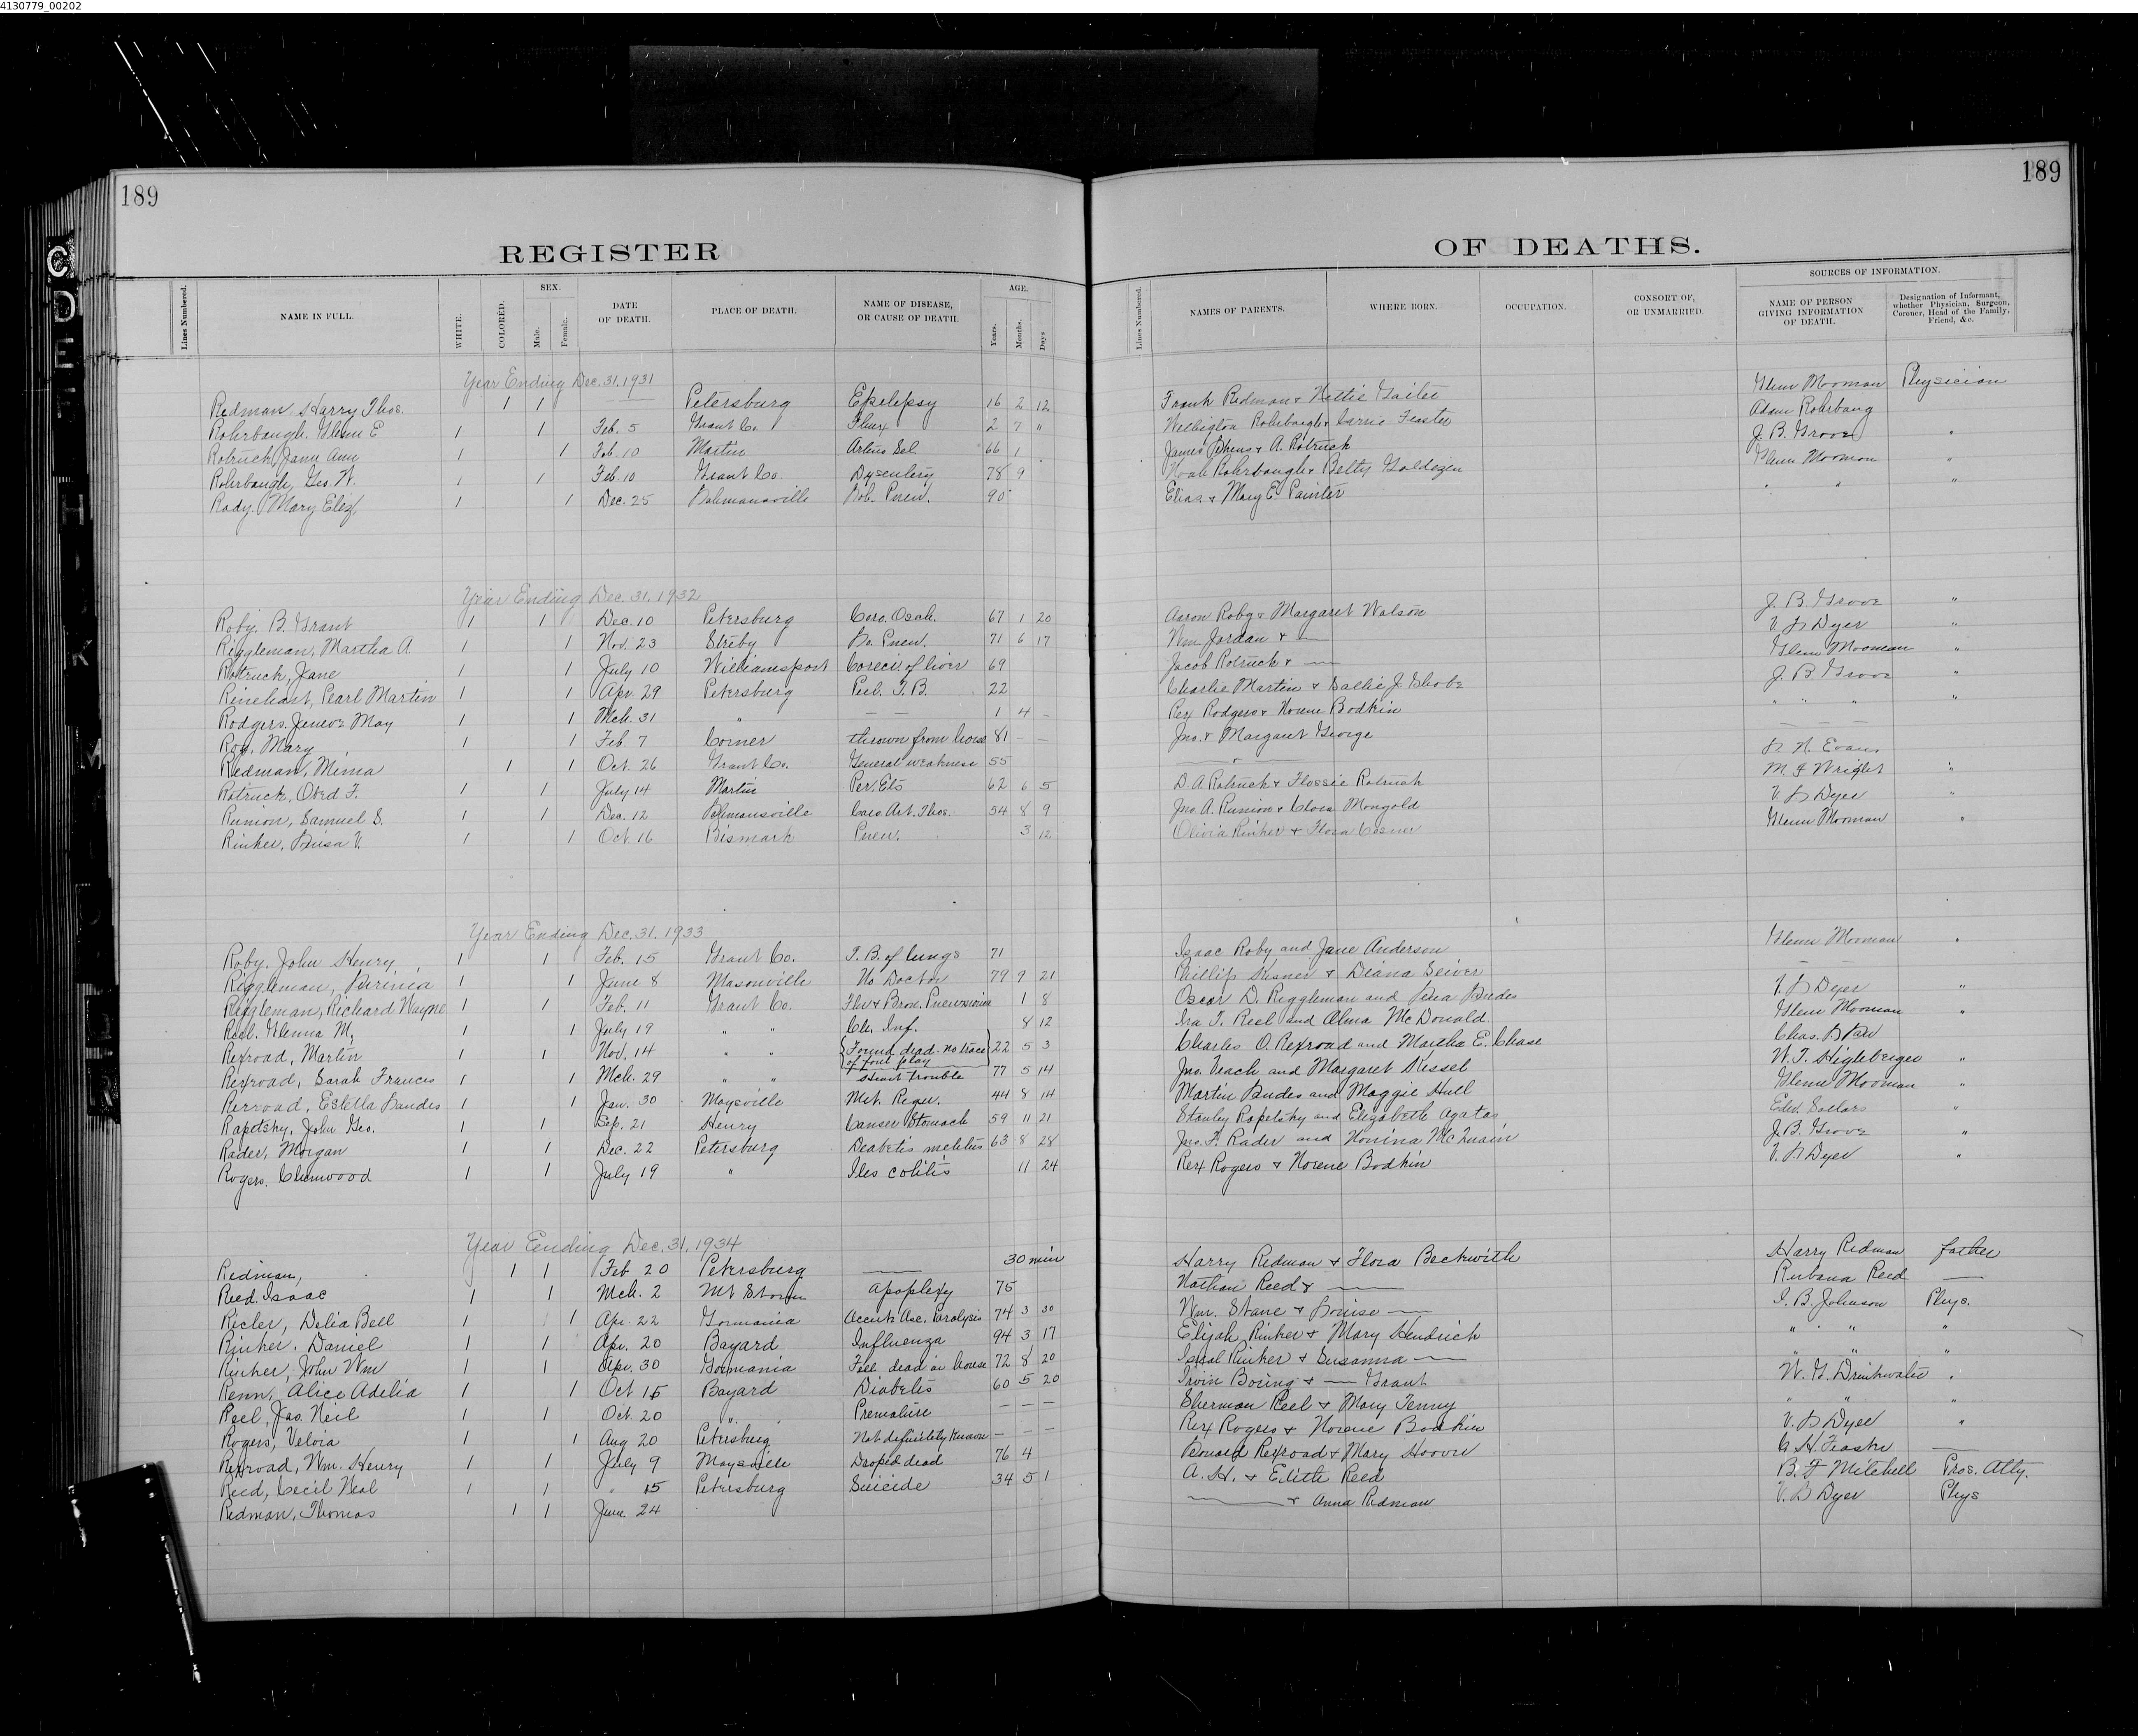 4130779_00202
189
189
REGISTER
OF DEATHS.
Lines Numbered.
NAME IN FULL.
WHITE.
COLORED.
SEX.
Male.
Female.
DATE OF DEATH.
PLACE OF DEATH.
NAME OF DISEASE, OR CAUSE OF DEATH.
AGE.
Years.
Months.
Days
Lines Numbered.
NAMES OF PARENTS.
WHERE BORN.
OCCUPATION.
CONSORT OF, OR UNMARRIED.
SOURCES OF INFORMATION.
NAME OF PERSON GIVING INFORMATION OF DEATH.
Designation of Informant, whether Physician, Surgeon, Coroner, Head of the Family, Friend, &c.
Year Ending Dec. 31. 1931
Redman Harry Thos. 1 1 Petersburg Epilepsy 16 2 12 Frank Redman & Nettie Glenn Mooman Physician
Rohrbaugh. Glenn E 1 1 Feb. 5 Grant Co. 2 7 " Rohrbaugh & Carrie Feaster Adam Rohrbaug
Rotruck, Jane Ann 1 1 Feb. 10 Martin 66 1 James & A. Rotruck J. B. Grove "
Rohrbaugh, Geo W. 1 1 Feb. 10 Grant Co. Dysentery 78 9 Noah Rohrbaugh & Betty Glenn Mooman "
Rady. Mary Eliz. 1 1 Dec. 25 Lob. Pneu. 90 Elias & Mary E. Painter " " "
Year Ending Dec. 31. 1932
Roby. B. Grant 1 1 Dec. 10 Petersburg 67 1 20 Aaron Roby & Margaret Watson J. B. Grove "
Riggleman, Martha A. 1 1 Nov. 23 Streby Pneu. 71 6 17 Wm. Jordan & — V. L. Dyer "
Rotruck, Jane 1 1 July 10 Williamsport of liver 69 Jacob Rotruck & — Glenn Mooman "
Rinehart, Pearl Martin 1 1 Apr. 29 Petersburg T. B. 22 Charlie Martin & Sallie J. Shobe J. B. Grove "
Rodgers. May 1 1 Mch. 31 " — — 1 4 — Rex Rodgers & Norene Bodkin " " " "
Roy, Mary 1 1 Feb. 7 Corner thrown from horse 81 — — Jno. & Margaret George — — —
Redman, Mima 1 1 Oct. 26 Grant Co. General weakness 55 — & — Evans
Rotruck, Obed F. 1 1 July 14 Martin 62 6 5 D. A. Rotruck & Flossie Rotruck M. F Wright "
Runion, Samuel S. 1 1 Dec. 12 54 8 9 Jno. A. Runion & Mongold V. L Dyer "
Rinker, V. 1 1 Oct. 16 Bismark Pneu. 3 12 Rinker & Flora Cosner Glenn Mooman "
Year Ending Dec. 31. 1933
Roby. John Henry 1 1 Feb. 15 Grant Co. T. B. of lungs 71 Isaac Roby and Jane Anderson Glenn Mooman "
Riggleman, 1 1 June 8 Masonville No Doctor 79 9 21 Phillip & Diana
Riggleman, Richard Wayne 1 1 Feb. 11 Grant Co. Flu & Bron. Pneumonia 1 8 Oscar D. Riggleman and V. L Dyer "
Reel. Glenna M. 1 1 July 19 " " Inf. 8 12 Ira T. Reel and Alma McDonald Glenn Mooman "
Rexroad, Martin 1 1 Nov. 14 " " Found dead. no trace of foul play 22 5 3 Charles O. Rexroad and Martha E. Chase Chas.
Rexroad, Sarah Frances 1 1 Mch. 29 " " Heart trouble 77 5 14 Jno. Veach and Margaret Kessel W. T. Highberger "
Rexroad, Estella 1 1 Jan. 30 Maysville Mit. Regur. 44 8 14 Martin and Maggie Hull Glenn Mooman "
Rapetsky, John Geo. 1 1 Sep. 21 Henry Canser Stomach 59 11 21 Stanley Rapetsky and Elizabeth Agatas Edw. Sollars "
Rader, Morgan 1 1 Dec. 22 Petersburg Diabetis melitis 63 8 28 Jno. F. Rader and J. B. Grove "
Rogers. Clenwood 1 1 July 19 " Ileo colitis 11 24 Rex Rogers & Norene Bodkin V. L Dyer "
Year Ending Dec. 31. 1934
Redman, 1 1 Feb 20 Petersburg — 30 min Harry Redman & Flora Beckwith Harry Redman father
Reed. Isaac 1 1 Mch. 2 Mt Storm apoplexy 75 Nathan Reed & — Reed —
Delia Bell 1 1 Apr. 22 Gormania Paralysis 74 3 30 Wm. & Louise — I. B. Johnson Phys.
Rinker. Daniel 1 1 Apr. 20 Bayard Influenza 94 3 17 Elijah Rinker & Mary Hendrick " " "
Rinker, John Wm 1 1 Apr. 30 Gormania Fell dead in house 72 8 20 Rinker & Susanna — " " "
Renn, Alice Adelia 1 1 Oct 15 Bayard Diabetis 60 5 20 Irvin Boring & — Grant W. G. Drinkwater "
Reel, Jas. Neil 1 1 Oct. 20 " Premature — — — Sherman Reel & Mary Tenny " " "
Rogers, Veloia 1 1 Aug 20 Petersburg Not definitely known — — — Rex Rogers & Norene Bodkin V. L Dyer "
Rexroad, Wm. Henry 1 1 July 9 Maysville Droped dead 76 4 Rexroad & Mary Hoover H. Feaster —
Reed, Cecil Neal 1 1 " 15 Petersburg Suicide 34 5 1 A. H. & Edith Reed B. F Mitchell Pros. Atty.
Redman, Thomas 1 1 June 24 — & Anna Redman V. L Dyer Phys